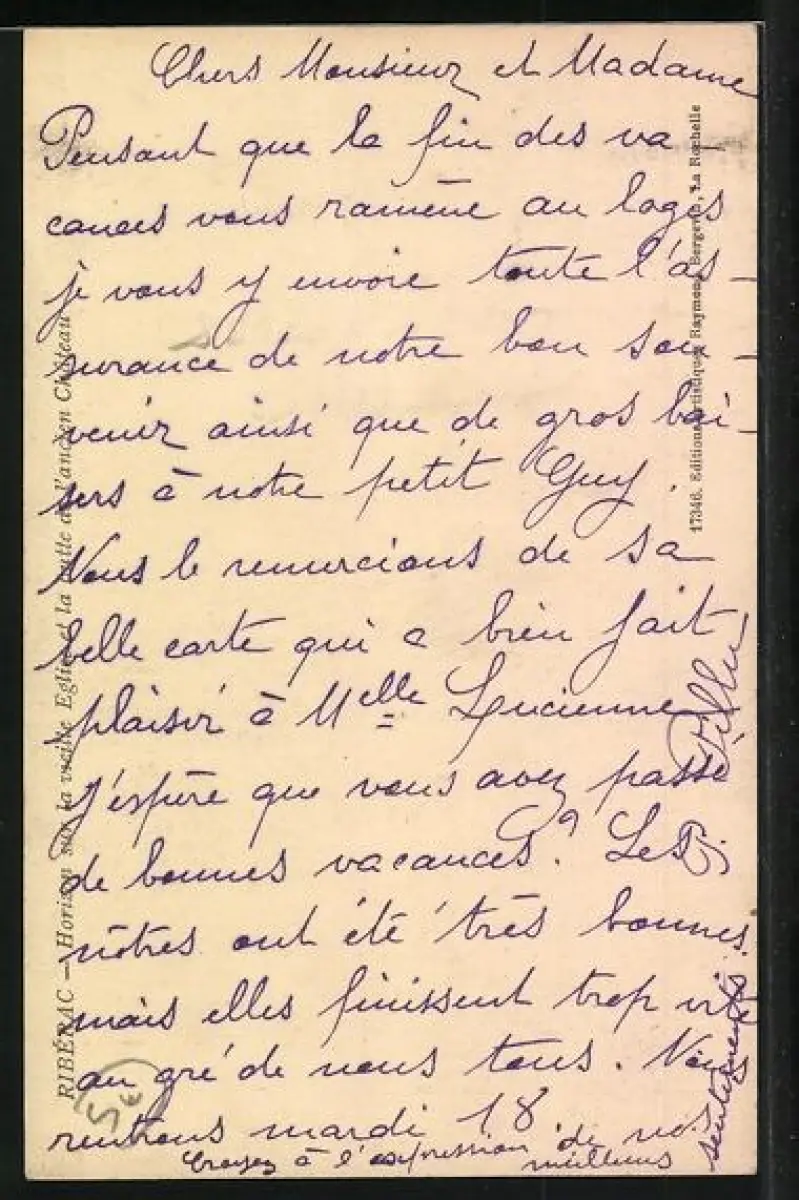 Chers Monsieur et Madame
Pensant que la fin des va-
cances vous ramène au logis
je vous y envoie toute l'as-
surance de notre bon sou-
venir ainsi que de gros bai-
sers à notre petit Guy.
Nous le remercions de sa
belle carte qui a bien fait
plaisir à Melle Lucienne
J'espère que vous avez passé
de bonnes vacances? Les
nôtres ont été très bonnes.
mais elles finissent trop vite
au gré de nous tous. Nous
rentrons mardi 18.
Croyez à l'expression de nos
meilleurs
sentiments
RIBÉRAC — Horizon sur la vieille Eglise et la butte de l'ancien Château
17346. Editions Artistiques Raymond Bergevin, La Rochelle